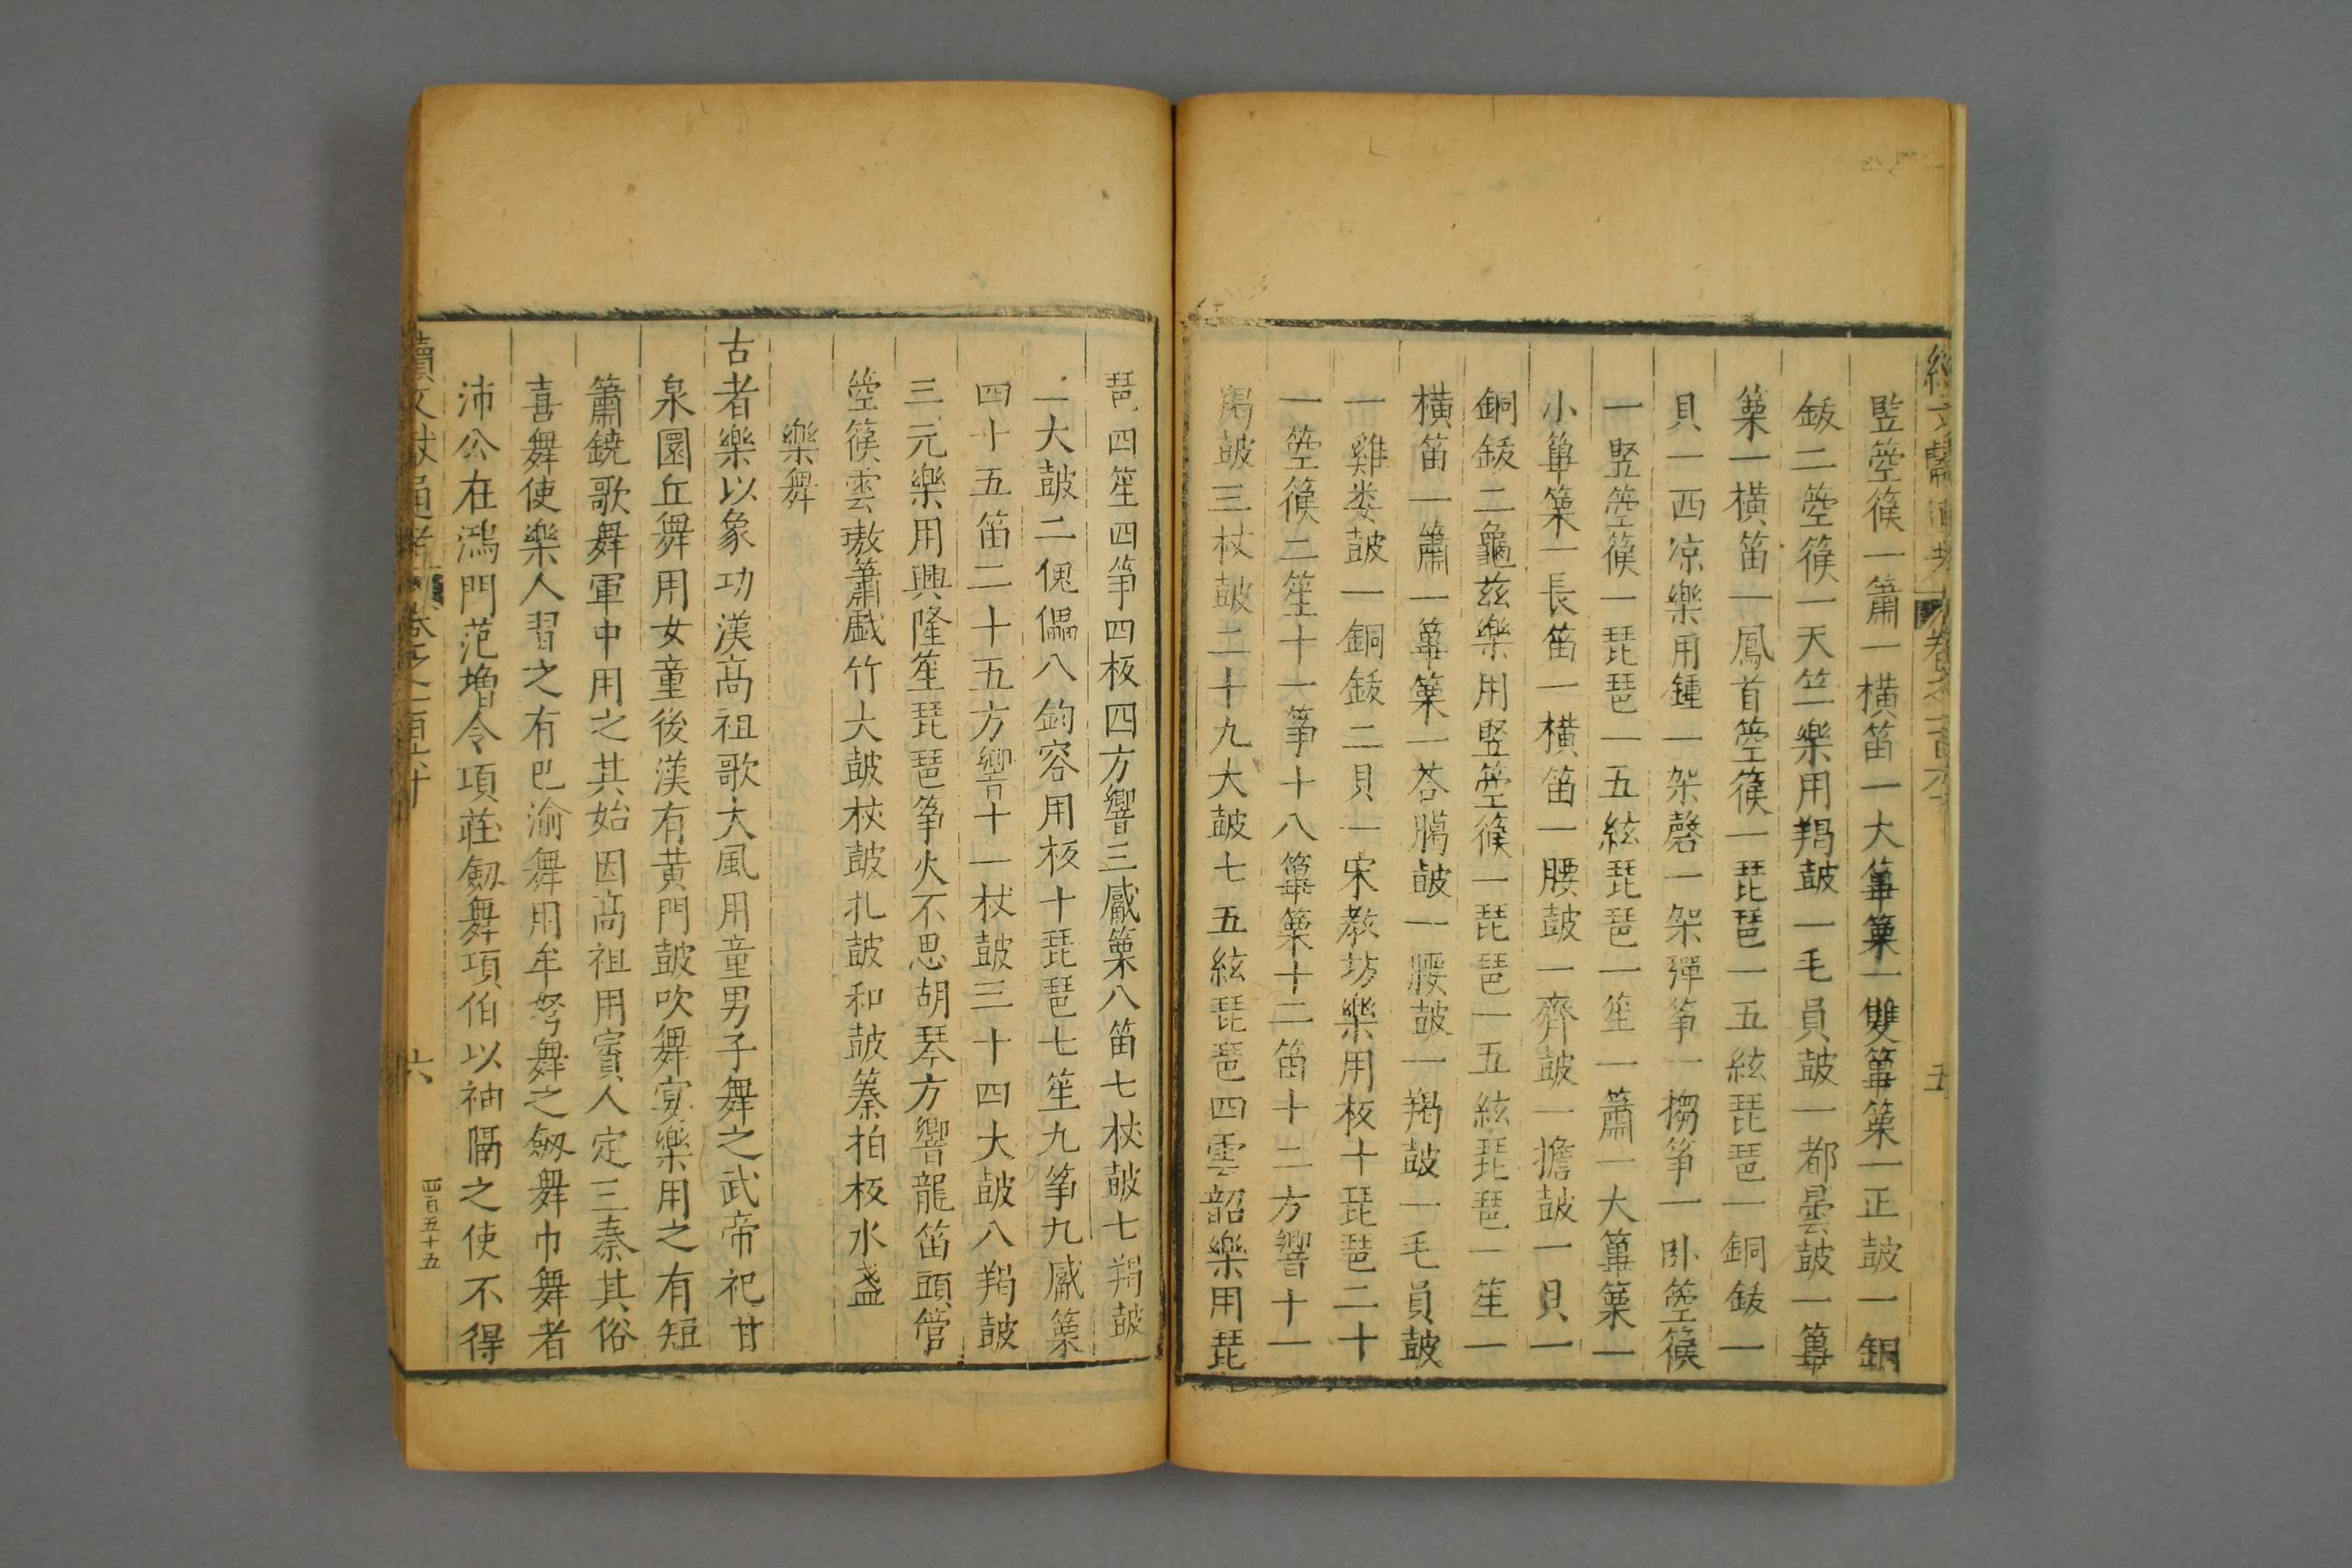 竪箜篌一簫一橫笛一大篳篥一雙篳篥一正皷一銅
鈸二箜篌一天竺樂用羯皷一毛員皷一都曇皷一篳
篥一橫笛一鳳首箜篌一琵琶一五絃琵琶一銅鈸一
貝一西凉樂用鍾一架磬一架彈筝一搊筝一卧箜篌
一竪箜篌一琵琶一五絃琵琶一笙一簫一大篳篥一
小篳篥一長笛一橫笛一腰皷一齊皷一擔皷一貝一
銅鈸二龜茲樂用竪箜篌一琵琶一五絃琵琶一笙一
橫笛一簫一篳篥一荅臈皷一腰皷一羯皷一毛員皷
一雞娄皷一銅鈸二貝一宋教坊樂用板十琵琶二十
一箜篌二笙十一筝十八篳篥十二笛十二方響十一
羯皷三杖皷二十九大皷七五絃琵琶四雲韶樂用琵
琶四笙四筝四板四方響三觱篥八笛七杖皷七羯皷
一大皷二傀儡八鈞容用板十琵琶七笙九筝九觱篥
四十五笛二十五方響十一杖皷三十四大皷八羯皷
三元樂用興隆笙琵琶筝火不思胡琴方響龍笛頭管
箜篌雲璈簫戲竹大皷杖皷扎皷和皷䈜拍板水盞
樂舞
古者樂以象功漢高祖歌大風用童男子舞之武帝祀甘
泉圜丘舞用女童後漢有黃門皷吹舞宴樂用之有短
簫鐃歌舞軍中用之其始因高祖用賓人定三秦其俗
喜舞使樂人習之有巴渝舞用牟弩舞之劒舞巾舞者
沛公在鴻門范增令項莊劒舞項伯以袖隔之使不得
六
四百五十五